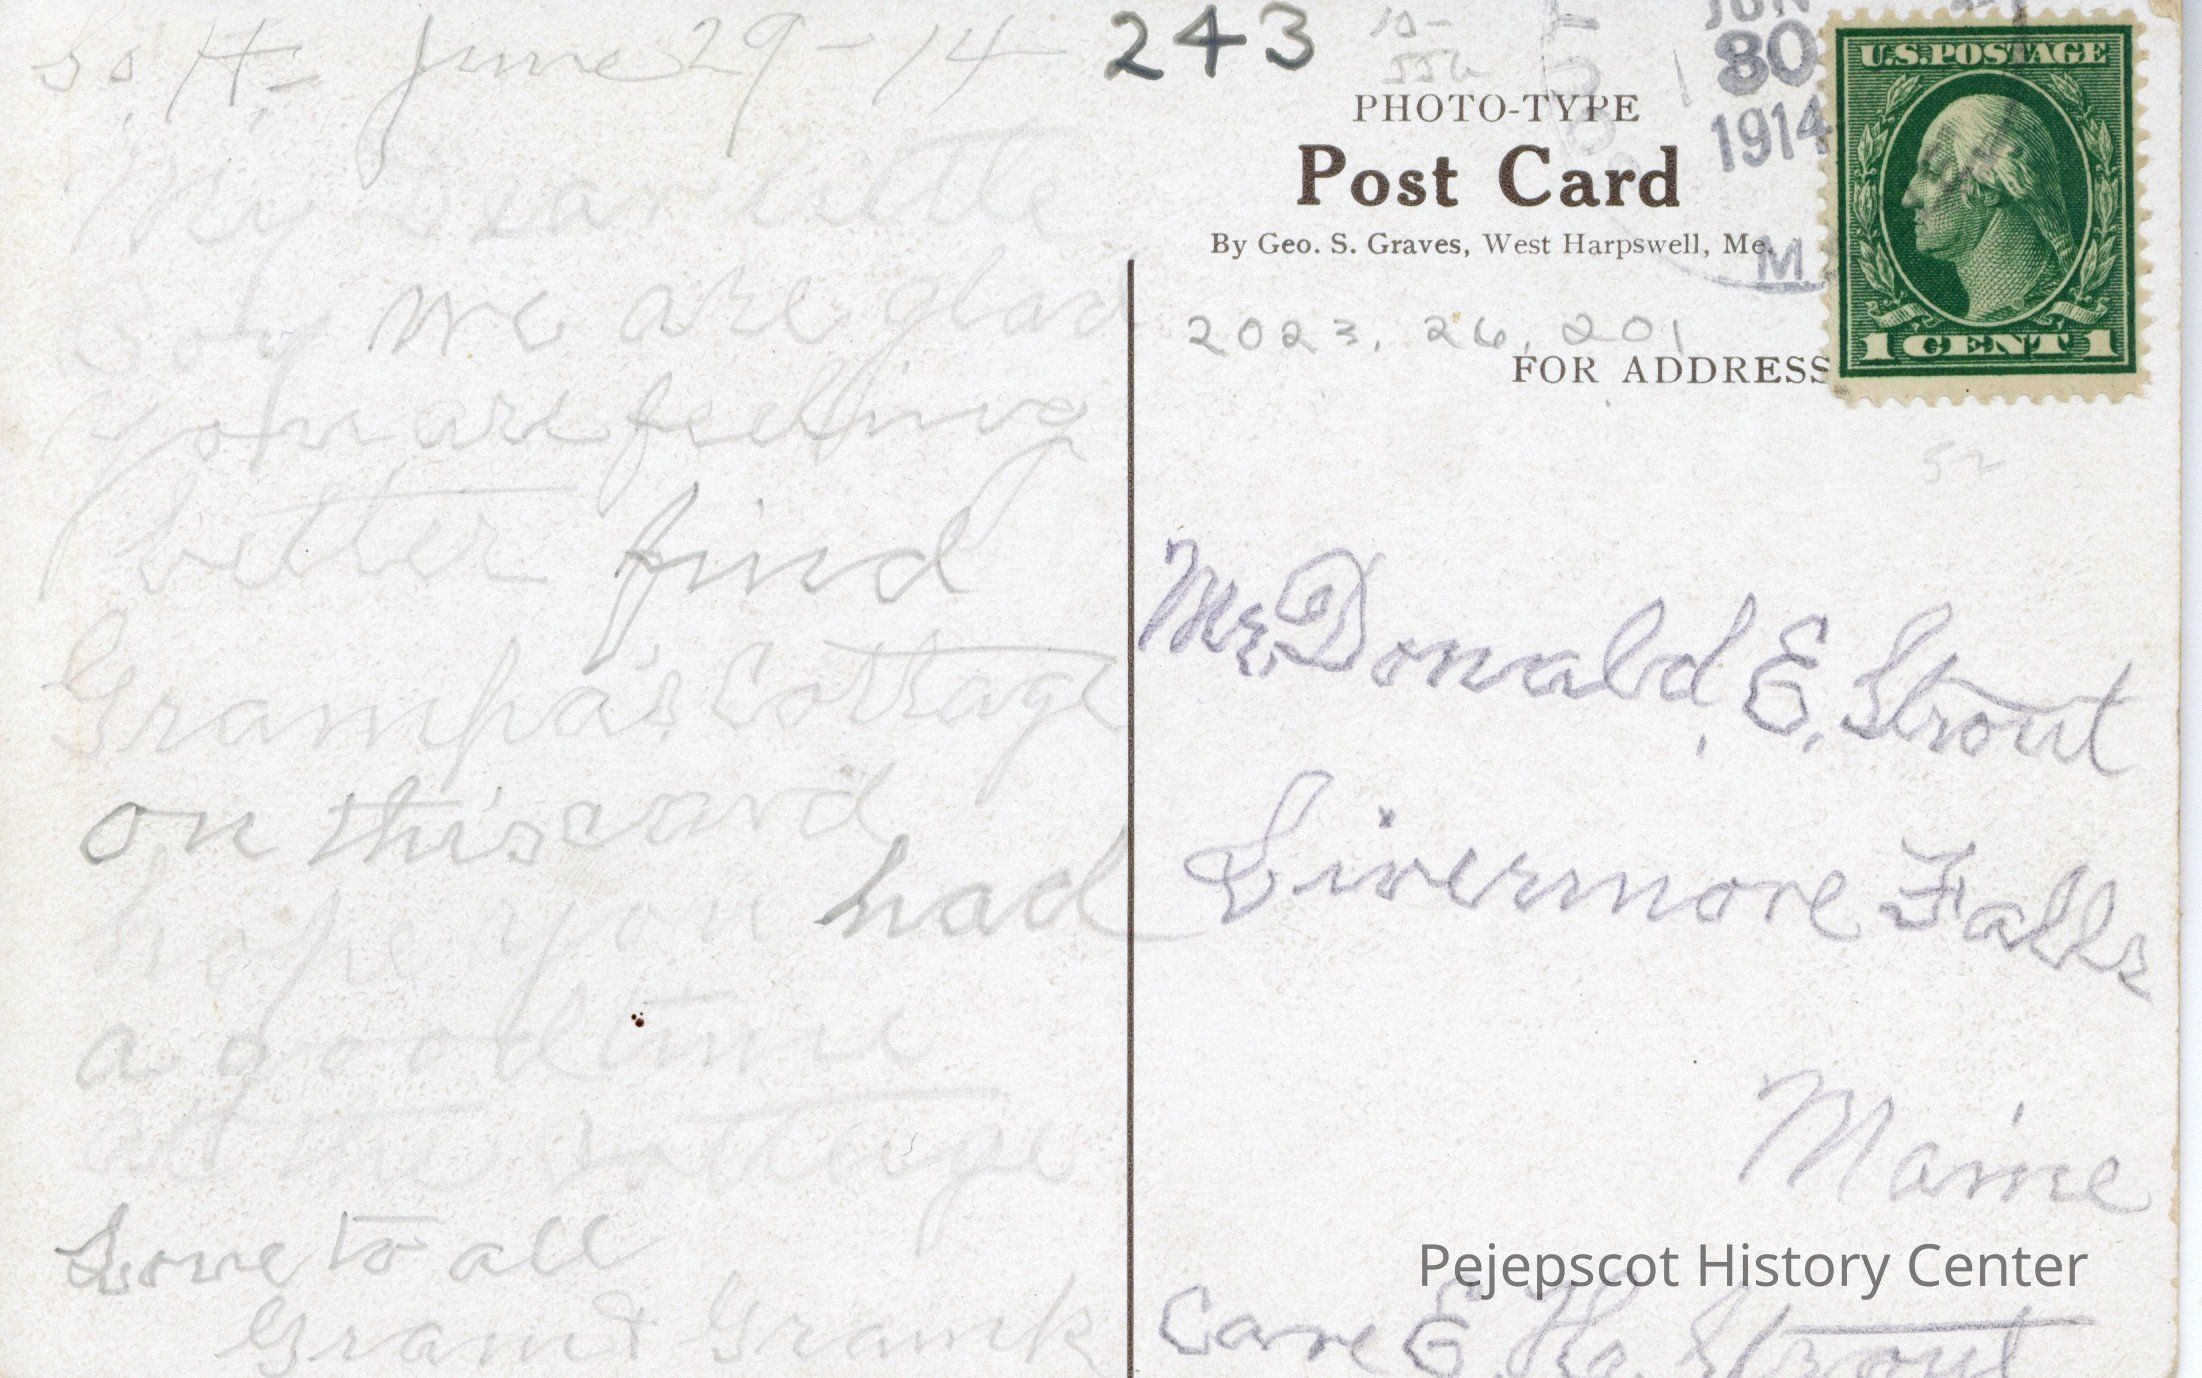 So. H. June 29-14
My Dear little
Boy we are glad
you are feeling
better find
Grampa's Cottage
on this card
hope you had
a good time
at the cottage
Love to all
Gram & Gramp
243
PHOTO-TYPE
Post Card
By Geo. S. Graves, West Harpswell, Me.
2023.26.201
FOR ADDRESS
JUN
30
1914
M
U.S. POSTAGE
1 CENT 1
52
Mr. Donald. E. Strout
Livermore Falls
Maine
Pejepscot History Center
Care E. H. Strout